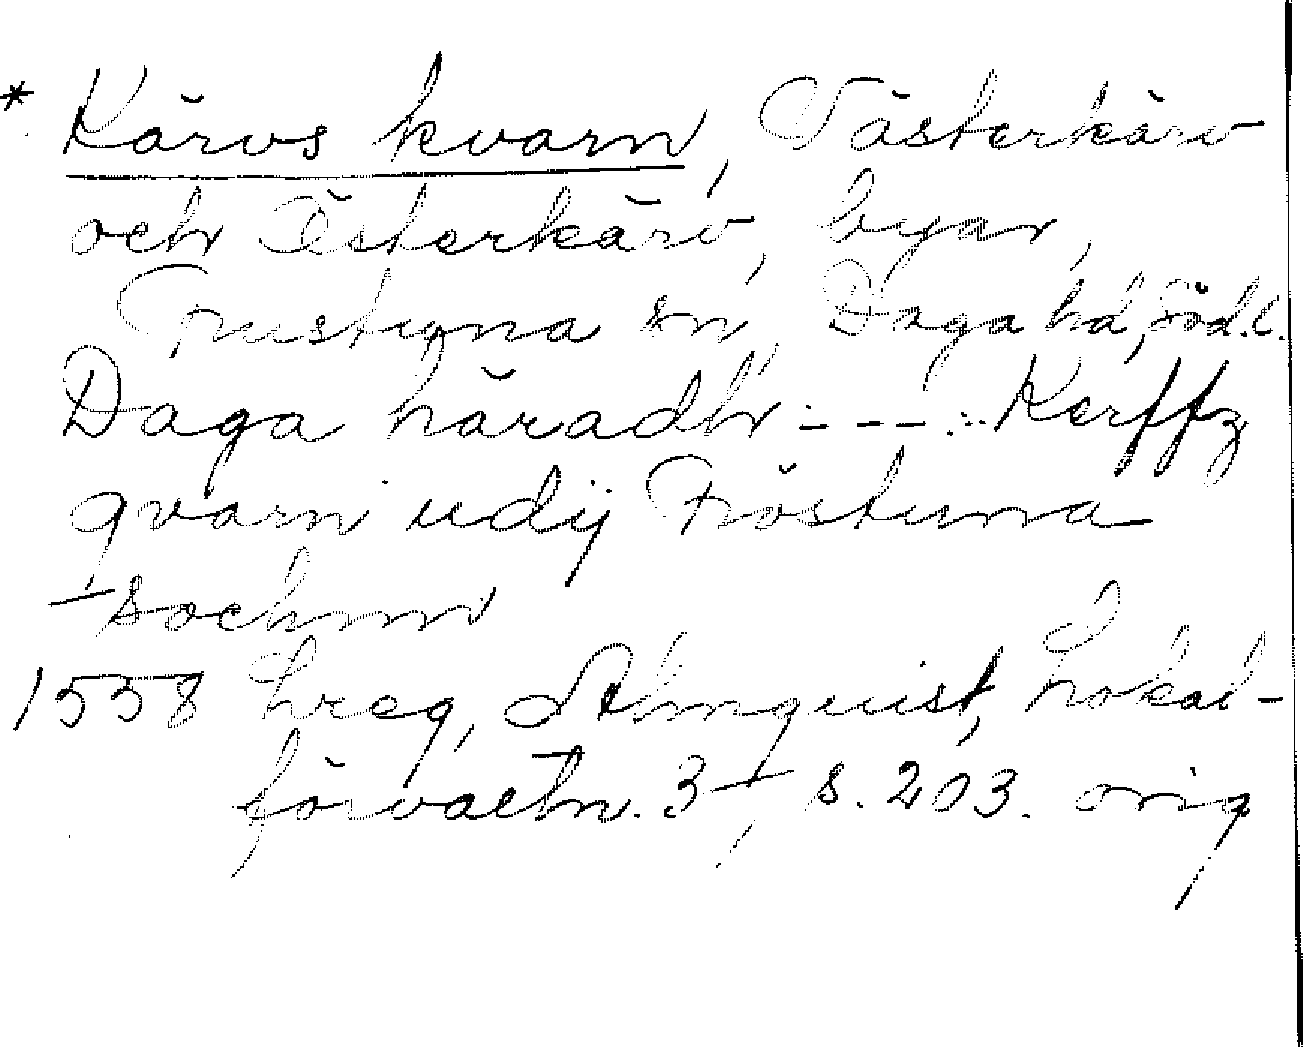 * Kärvs kvarn, Västerkärv
och Österkärv, byar,
Frustuna sn, Daga hd, Söd.l.
Daga häradh - - - . . . Kerffz
qvarn udij Fröstuna
sochnn
1558 hreg, Almquist, Lokal-
förvaltn. 3, s. 203. orig